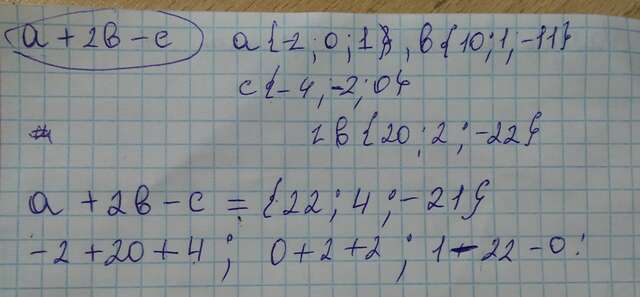 a + 2в - c a{-2; 0; 1}, в{10; 1; -11}
c{-4; -2; 0}
2в{20; 2; -22}
a + 2в - c = {22; 4; -21}
-2 + 20 + 4; 0 + 2 + 2; 1 - 22 - 0: